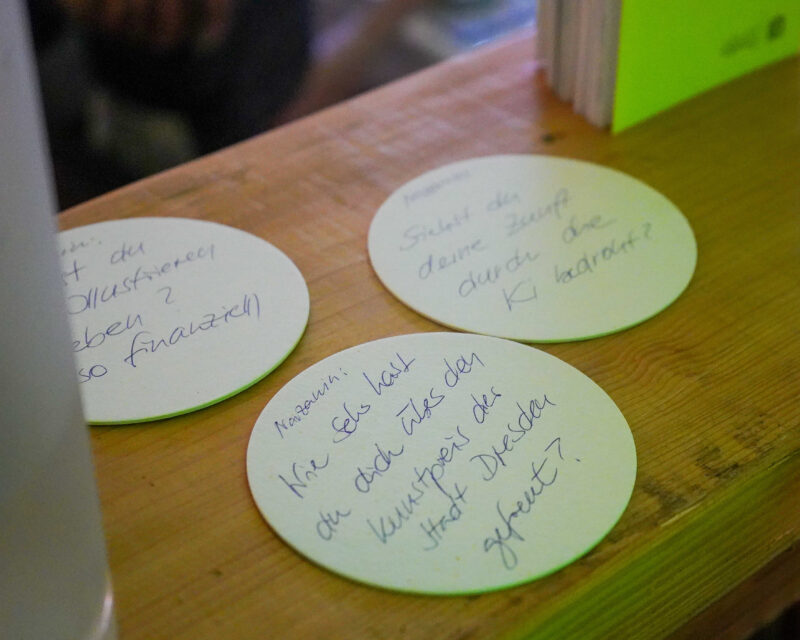 st du
Illustrieren
eben?
so finanziell)
Siehst du
deine Zunft
durch die
KI bedroht?
Nazanin:
Wie sehr hast
du dich über den
Kunstpreis der
Stadt Dresden
gefreut?